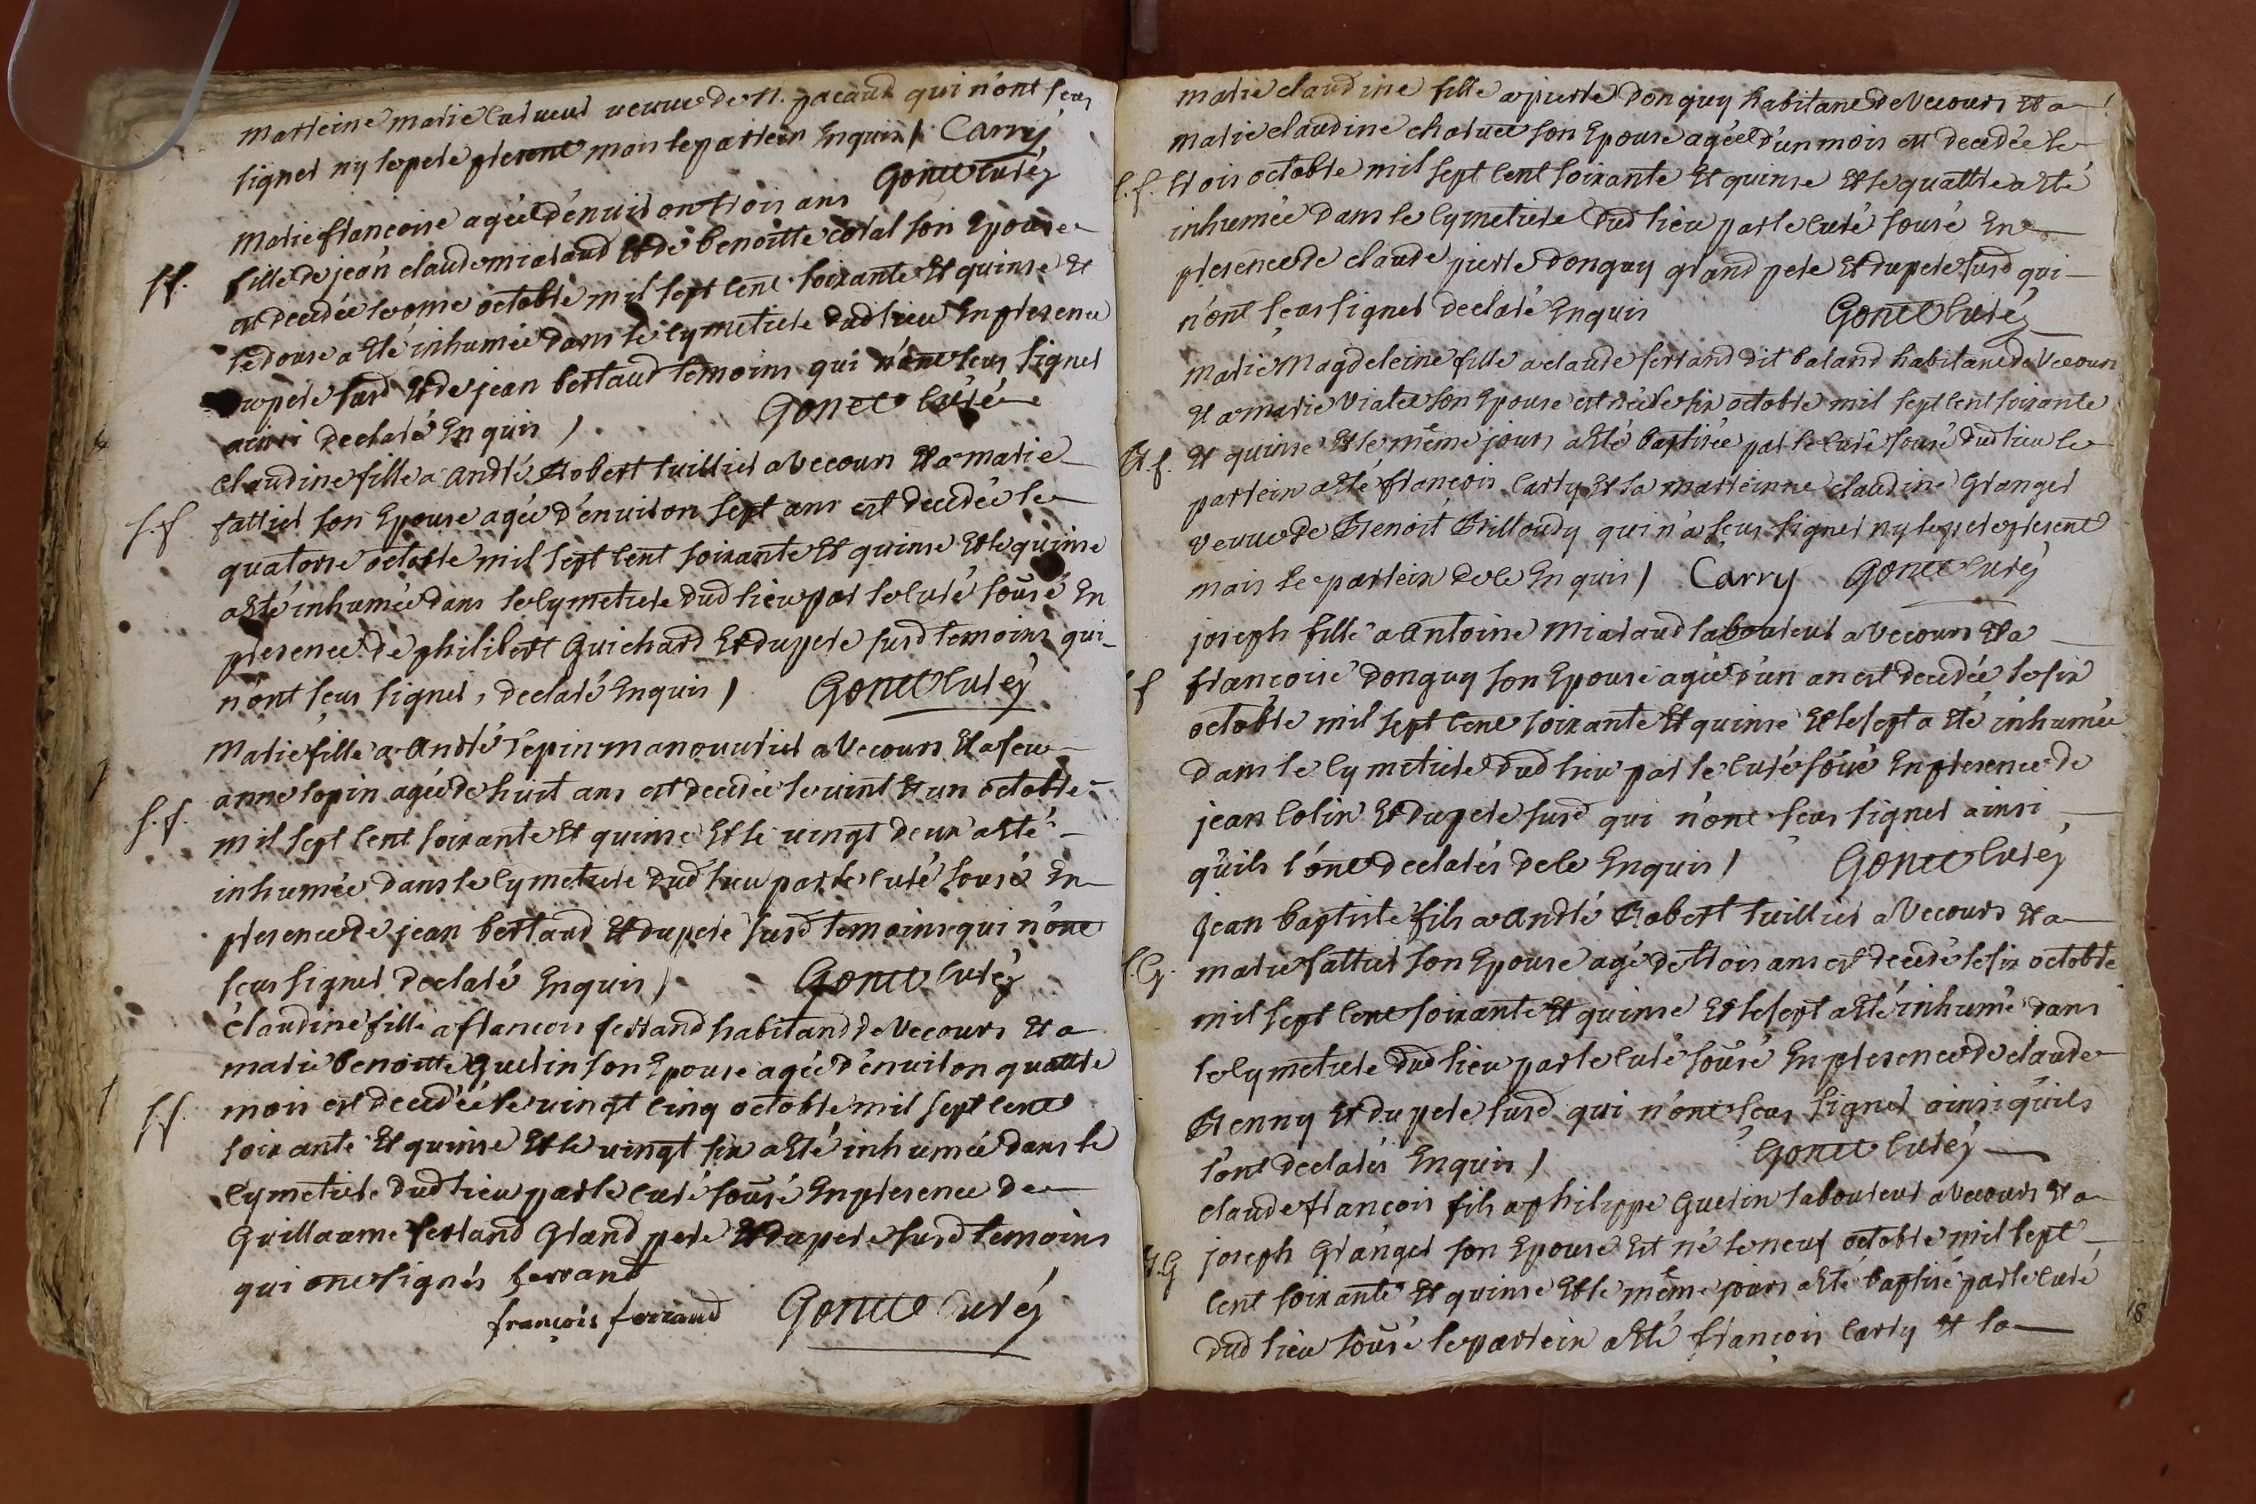 marreine marie veuve de N. pacaud qui n'ont sçus
signer ny le pere present mais le parrein Enquis / Carry
Gonet curéz
marie francoise agée d'environ trois ans
fille de jean claude miraud Et de benoitte cotal son Epouse
S.f.
est decedée le onse octobre mil sept cent soixante Et quinse Et
le douse a Eté inhumée dans le cymetiere dud lieu En presence
du pere susd Et de jean bertaud temoins qui n'ont sçus signer
ainsi declaré Enquis / Gonet curé
claudine fille a André Robert tuillier a Vecours Et a marie
S.f. fattier son Epouse agée d'environ sept ans est decedée le
quatorse octobre mil sept cent soixante Et quinse Et le quinse
a Eté inhumée dans le cymetiere dud lieu par le curé sousé En
presence de philibert Guichard Et du pere susd temoins qui
n'ont sçus signer, declaré Enquis / Gonet curéz
Marie fille a André Pepin manouvrier a Vecours Et a feue
S.f. anne lopin agée de huit ans est decedée le vint Et un octobre
mil sept cent soixante Et quinse Et le vingt deux a Eté
inhumée dans le cymetiere dud lieu par le curé sousé En
presence de jean bertaud Et du pere susd temoins qui n'ont
sçus signer declaré Enquis / Gonet curéz
claudine fille a francois ferrand habitand de Vecours Et a
marie benoitte Guerin son Epouse agée d'environ quattre
S.f. mois est decedée le vingt cinq octobre mil sept cent
soixante Et quinse Et le vingt six a Eté inhumée dans le
cymetiere dud lieu par le curé sousé En presence de
Guillaume ferrand Grand pere Et du pere susd temoins
qui ont signés ferrand
françois ferraud Gonet curéz
marie claudine fille a pierre donguy habitant de Vecours Et a
marie claudine charuet son Epouse agée d'un mois est decedée le
S.f. trois octobre mil sept cent soixante Et quinse Et le quattre a Eté
inhumée dans le cymetiere dud lieu par le curé sousé En
presence de claude pierre donguy grand pere Et du pere susd qui
n'ont sçus signer declaré Enquis Gonet curéz
marie Magdeleine fille a claude ferrand dit baland habitant de Vecours
Et a marie Viatet son Epouse est née le six octobre mil sept cent soixante
B.f. Et quinse Et le même jours a Eté baptisée par le curé sousé dud lieu le
parrein a Eté francois Carry Et la marreinne claudine Granger
veuve de Benoit Billoudy qui n'a sçus signer ny le pere present
mais le parrein de ce Enquis / Carry Gonet curéz
joseph fille a Antoine Miraud laboureur a Vecours Et a
S.f francoise donguy son Epouse agée d'un an est decedée le six
octobre mil sept cent soixante Et quinse Et le sept a Eté inhumée
dans le cymetiere dud lieu par le curé sousé En presence de
jean colin Et du pere susd qui n'ont sçus signer ainsi
qu'ils l'ont declarés de ce Enquis / Gonet curéz
Jean baptiste fils a André Robert tuillier a Vecours Et a
S.G. marie fattier son Epouse agé de trois ans est decedé le six octobre
mil sept cent soixante Et quinse Et le sept a Eté inhumé dans
le cymetiere dud lieu par le curé sousé En presence de claude
Renny Et du pere susd qui n'ont sçus signer ainsi qu'ils
l'ont declarés Enquis / Gonet curéz
claude françois fils a philippe Guerin laboureur a Vecours Et a
B.G joseph Granger son Epouse Est né le neuf octobre mil sept
cent soixante Et quinse Et le même jours a Eté baptisé par le curé
dud lieu sousé le parrein a Eté françois Carry Et la
18